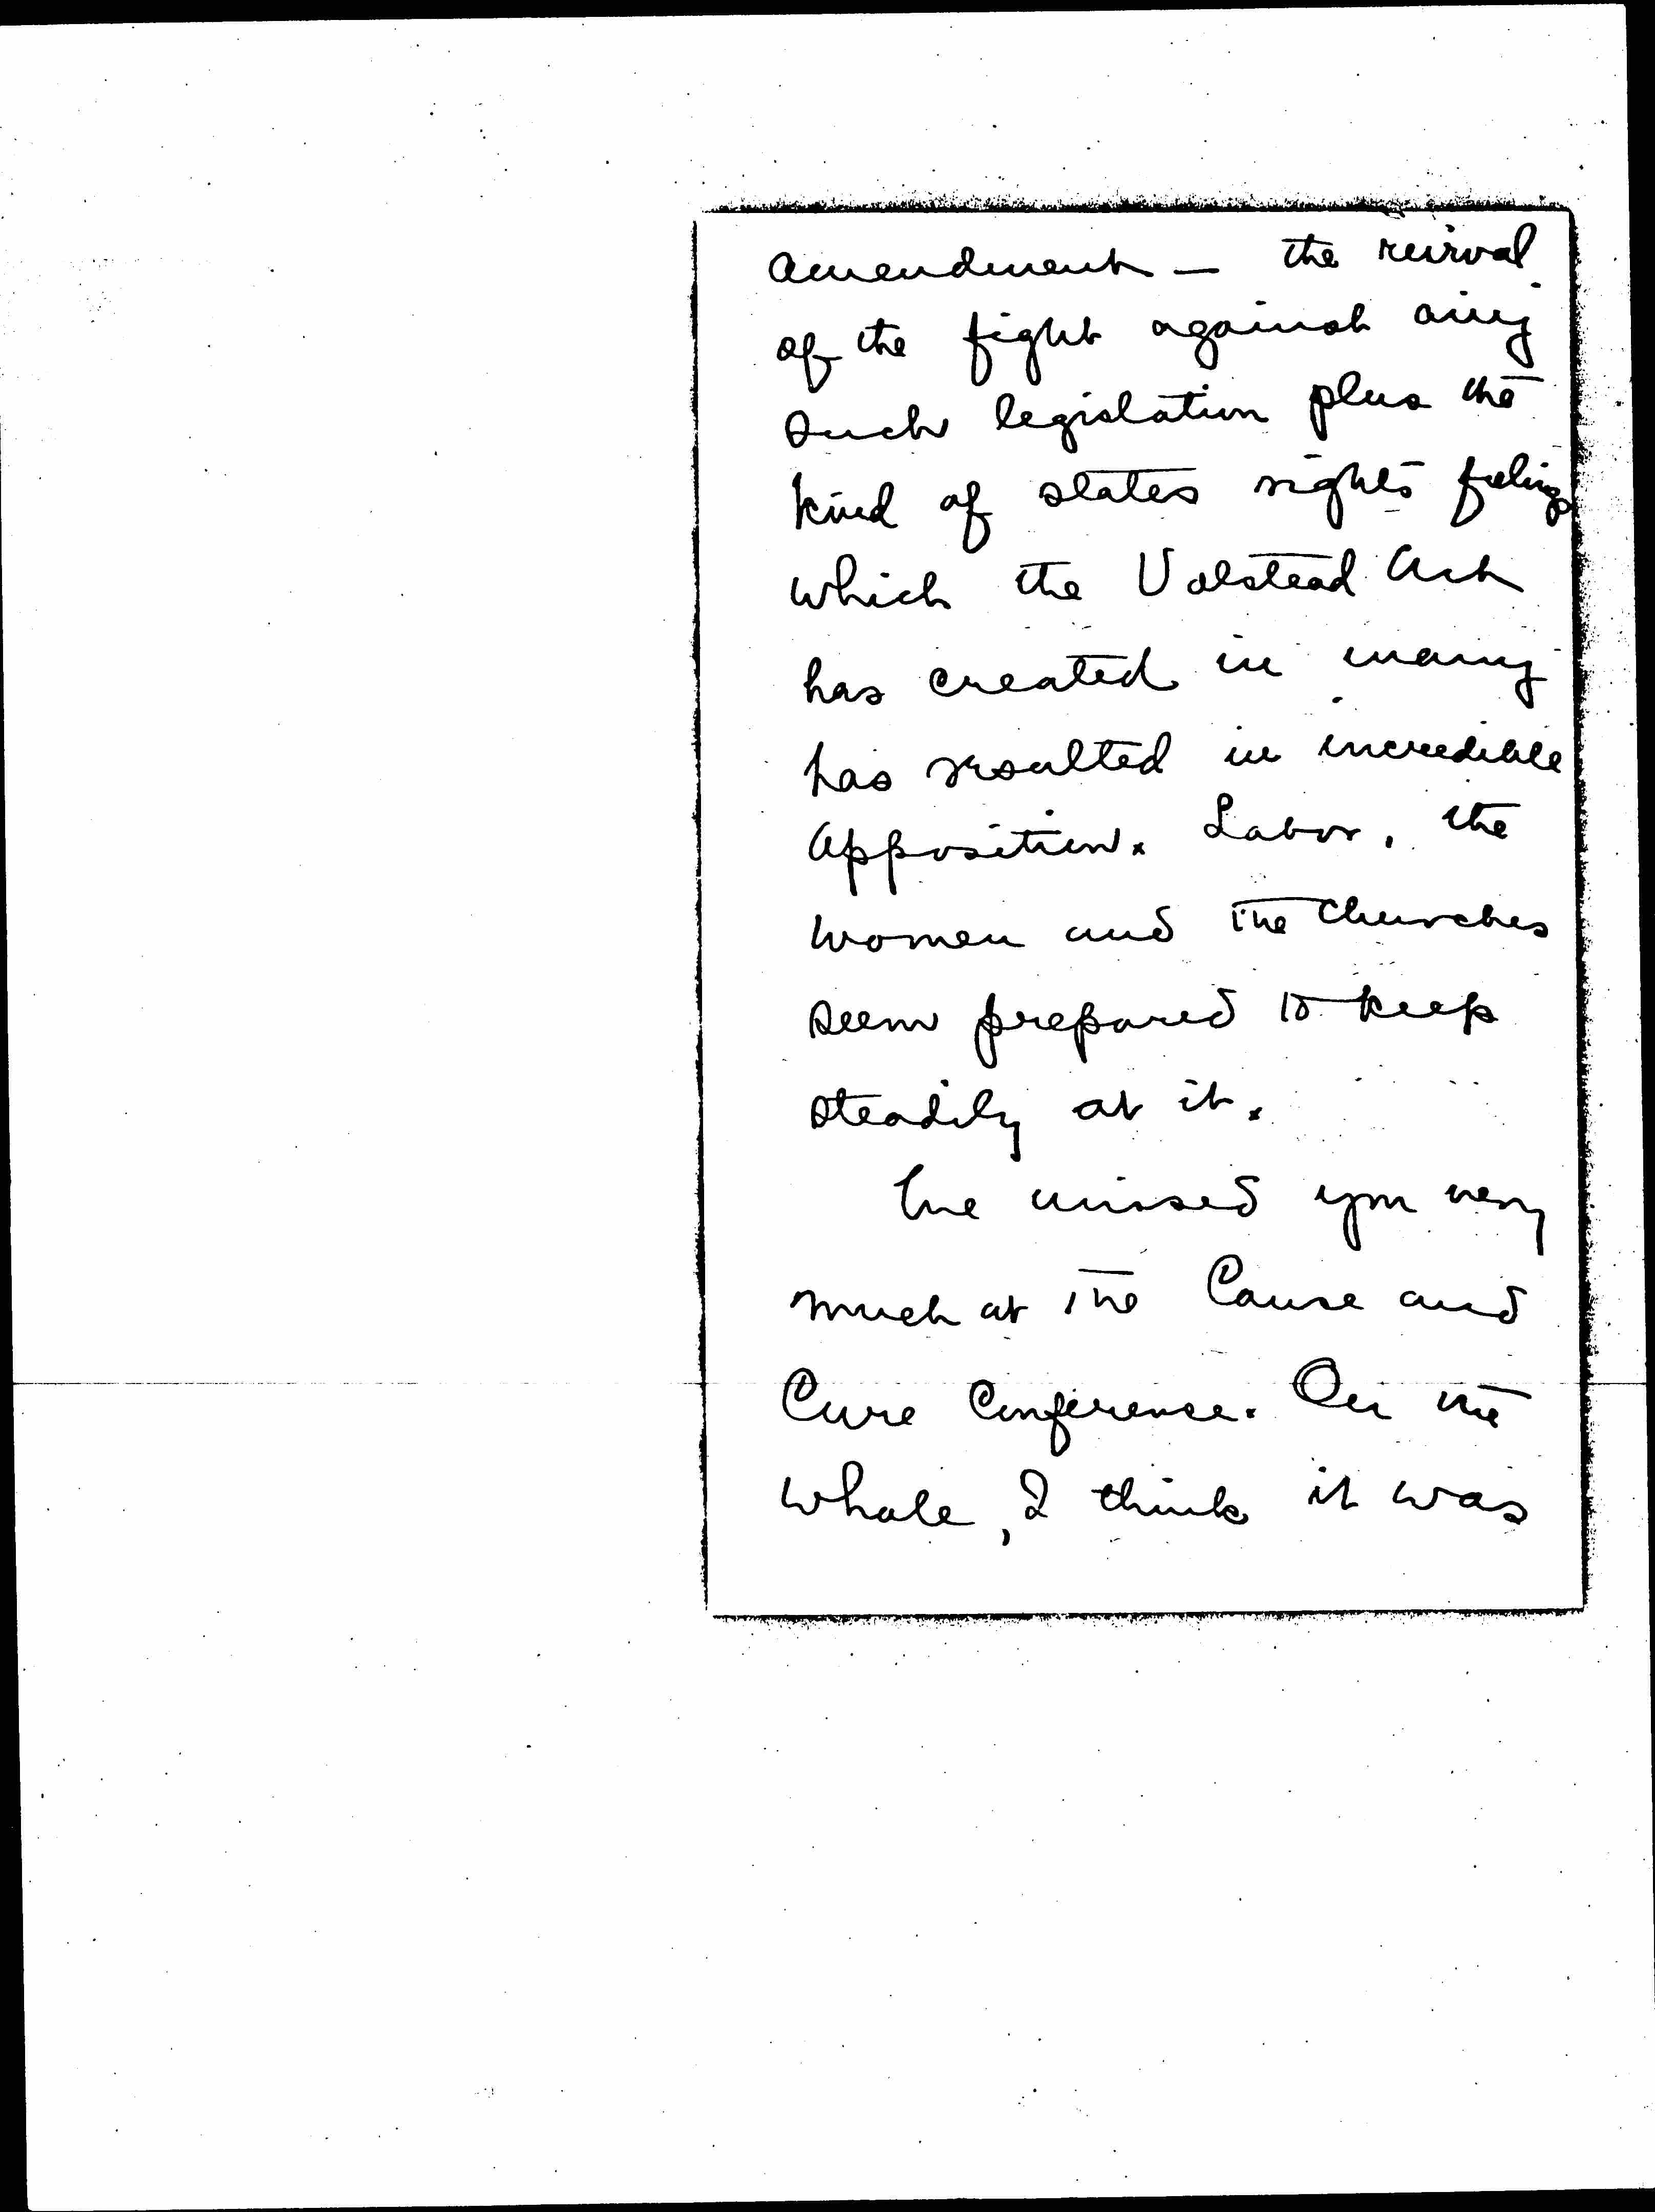 amendment – the revival
of the fight against any
such legislation plus the
kind of states rights feeling
which the Volstead Act
has created in many
has resulted in incredible
opposition. Labor, the
women and the churches
seem prepared to keep
steadily at it.
We missed you very
much at the Cause and
Cure Conference. On the
whole, I think it was